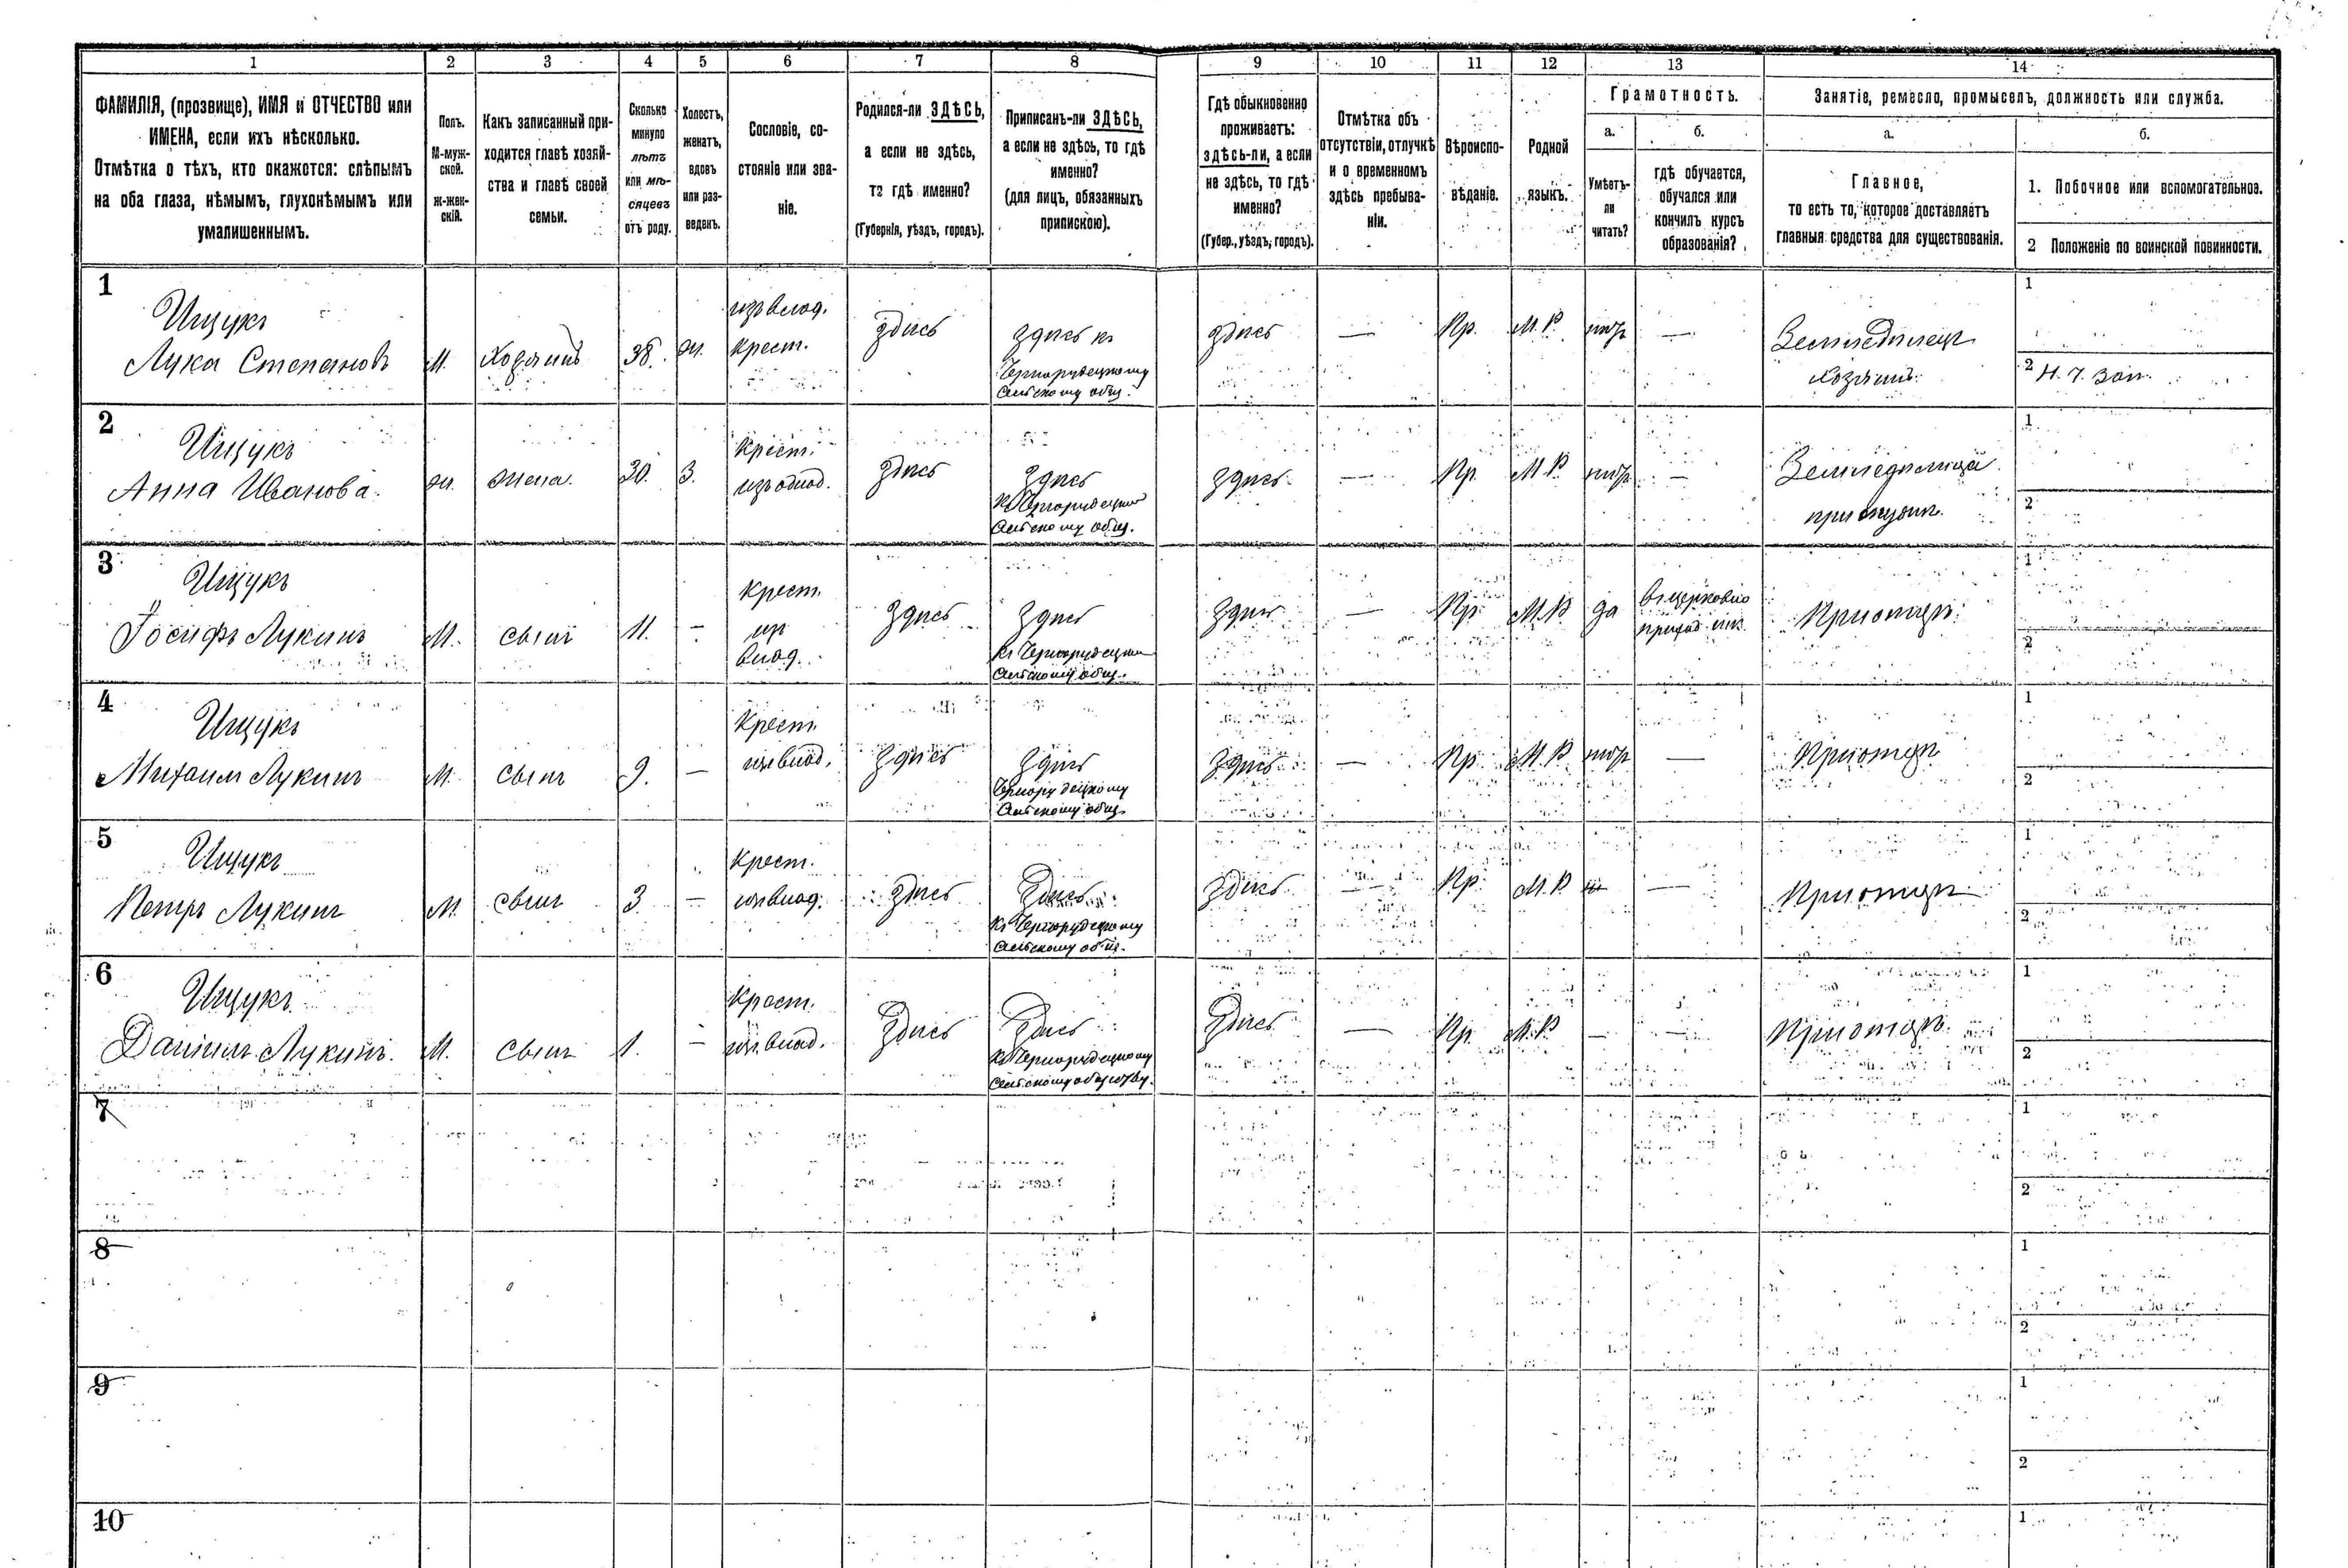 1 2 3 4 5 6 7 8 9 10 11 12 13 14
ФАМИЛІЯ, (прозвище), ИМЯ и ОТЧЕСТВО или
ИМЕНА, если ихъ нѣсколько.
Отмѣтка о тѣхъ, кто окажется: слѣпымъ
на оба глаза, нѣмымъ, глухонѣмымъ или
умалишеннымъ.
Полъ.
М-муж-
ской.
Ж-жен-
скій.
Какъ записанный при-
ходится главѣ хозяй-
ства и главѣ своей
семьи.
Сколько
минуло
лѣтъ
или мѣ-
сяцевъ
отъ роду.
Холостъ,
женатъ,
вдовъ
или раз-
веденъ.
Сословіе, со-
стояніе или зва-
ніе.
Родился-ли ЗДѢСЬ,
а если не здѣсь,
то гдѣ именно?
(Губернія, уѣздъ, городъ).
Приписанъ-ли ЗДѢСЬ,
а если не здѣсь, то гдѣ
именно?
(для лицъ, обязанныхъ
припискою).
Гдѣ обыкновенно
проживаетъ:
здѣсь-ли, а если
не здѣсь, то гдѣ
именно?
(Губер., уѣздъ, городъ).
Отмѣтка объ
отсутствіи, отлучкѣ
и о временномъ
здѣсь пребыва-
ніи.
Вѣроиспо-
вѣданіе.
Родной
языкъ.
Грамотность.
а.
Умѣетъ-
ли
читать?
б.
гдѣ обучается,
обучался или
кончилъ курсъ
образованія?
Занятіе, ремесло, промыселъ, должность или служба.
а.
Главное,
то есть то, которое доставляетъ
главныя средства для существованія.
б.
1. Побочное или вспомогательное.
2 Положеніе по воинской повинности.
1
Ищукъ
Лука Степановъ
М.
Хозяинъ
38.
ж.
изъ влад.
крест.
здѣсь
здѣсь къ
Чернорудецкому
сельскому общ.
здѣсь
—
Пр.
М.Р.
нѣтъ
—
Земледѣлецъ
хозяинъ
1
2
2
Ищукъ
Анна Иванова.
ж.
жена.
30.
З.
крест.
здѣсь
здѣсь
сельскому общ.
здѣсь
—
Пр.
М.Р.
нѣтъ
—
1
2
3
Ищукъ
Іосифъ Лукинъ
М.
сынъ
11.
—
крест.
изъ
влад.
здѣсь
здѣсь
сельскому общ.
здѣсь
—
Пр.
М.Р.
да
въ церковно
приход. шк.
При отцѣ
1
2
4
Ищукъ
Михаилъ Лукинъ
М.
сынъ
9.
—
крест.
изъ влад.
здѣсь
здѣсь
Чернорудецкому
сельскому общ.
здѣсь
—
Пр.
М.Р.
нѣтъ
—
При отцѣ
1
2
5
Ищукъ
Петръ Лукинъ
М.
сынъ
3
—
крест.
изъ влад.
здѣсь
здѣсь
къ Чернорудецкому
сельскому общ.
здѣсь
—
Пр.
М.Р.
—
При отцѣ
1
2
6
Ищукъ
Даніилъ Лукинъ.
М.
сынъ
1.
—
крест.
изъ влад.
здѣсь
здѣсь
къ Чернорудецкому
сельскому
здѣсь
—
Пр.
М.Р.
—
—
При отцѣ
1
2
7
1
2
8
1
2
9
1
2
10
1